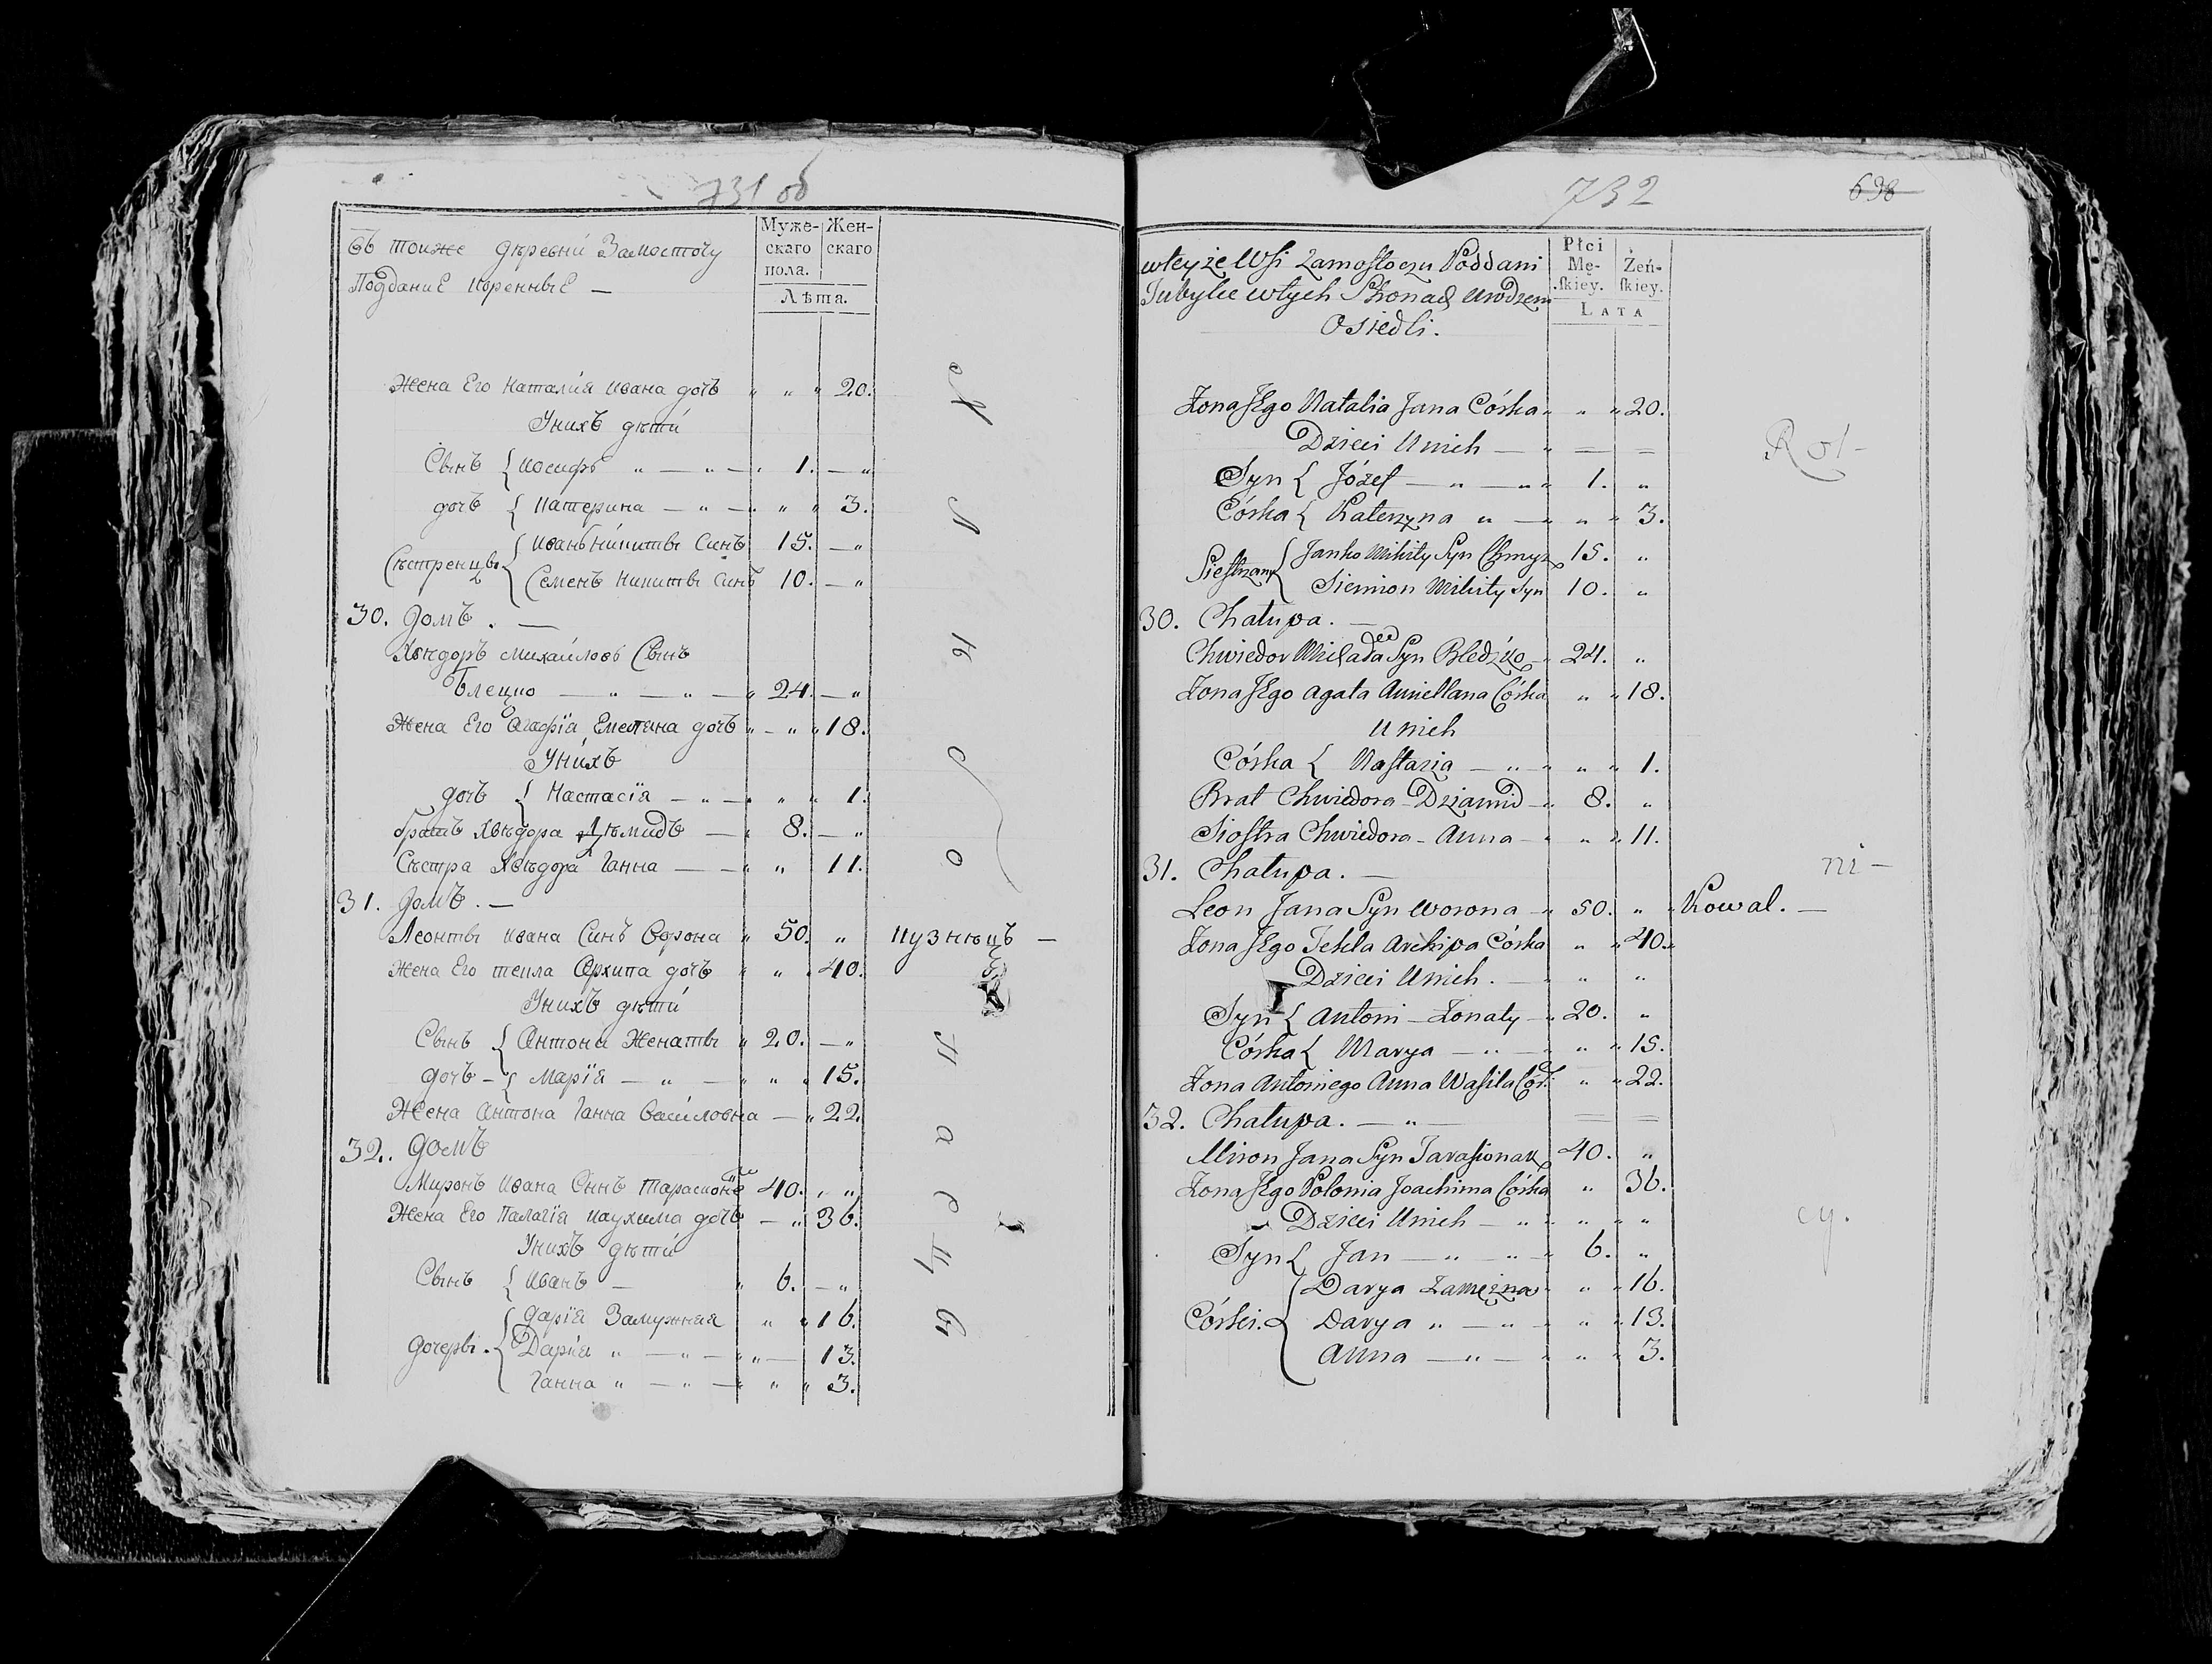 731 об
Въ тоиже деревни Замосточу
Подданіе коренные —
Муже-
скаго
пола.
Жен-
скаго
Лѣта.
Жена Его Наталія Ивана дочъ " " " 20.
Унихъ дѣти
Сынъ { Иосифъ " — " — " 1. — "
дочъ { Катерина — " — " " " 3.
Сѣстренцы { Иванъ Никиты Синъ 15. — "
Семенъ Никиты Синъ 10. — "
30. Домъ. —
Хведоръ Михаиловъ Сынъ
Блецко — " — " — " 24. — "
Жена Его Агафія Емеляна дочъ " — " " 18.
Унихъ
дочъ { Настасія — " — " " " 1.
братъ Хведора Демидъ — " 8. — "
Сестра Хведора Ганна — — " " 11.
31. Домъ. —
Леонты Ивана Синъ Ворона " 50. " кузнецъ —
Жена Его текла Архипа дочъ " " " 40.
Унихъ дѣти
Сынъ { Антони Женаты " 20. — "
дочъ — { Марія — " — " " " 15.
Жена Антона Ганна Василовна — " 22.
32. домъ
Миронъ Ивана Синъ 40. " "
Жена Его Палагія Иаухима дочъ — " 36.
Унихъ дѣти
Сынъ { Иванъ — " 6. — "
Дочеры. { Дарія Замужная " " 16.
Дарія " — " — " " — 13.
Ганна " — " — " " " 3.
732
698
wteyże Wsi Zamostoczu Poddani
Tubylce wtych Stronach Urodzeni
Osiedli.
Płci
Mę-
skiey.
Żeń-
skiey.
LATA
Zona Jego Natalia Jana Córka " " " 20.
Dzieci Unich — " = =
Syn { Józef — " — " " 1. "
Córka { Katerzyna " — " " " 3.
Siestrzany { Janko Mikity Syn Chmyz 15. "
Siemion Mikity Syn 10. "
30. Chałupa. —
Chwiedor Michała Syn Bledzko — 24. "
Zona Jego Agata Amiellana Córka " " 18.
Unich
Córka { Nastazia — " — " " " 1.
Brat Chwiedora — Dziamid — " 8. "
Siostra Chwiedora — Anna — " " " 11.
31. Chałupa. —
Leon Jana Syn Worona — " 50. " " Kowal. —
Zona Jego Tekla Archipa Córka " " 40.
Dzieci Unich. — " " "
Syn { Antoni — Zonaty — " 20. "
Córka { Marya — " — " " " 15.
Zona Antoniego Anna Wasila Cór: " " 22.
32. Chałupa. — " — = =
Miron Jana Syn Tarasionak 40. "
Zona Jego Polonia Joachima Córka " 36.
Dzieci Unich — " " " "
Syn { Jan — " — " " 6. "
Córki. { Darya Zamężna " " " 16.
Darya " — " — " " 13.
Anna — " — " " " 3.
Rol-
ni-
cy.